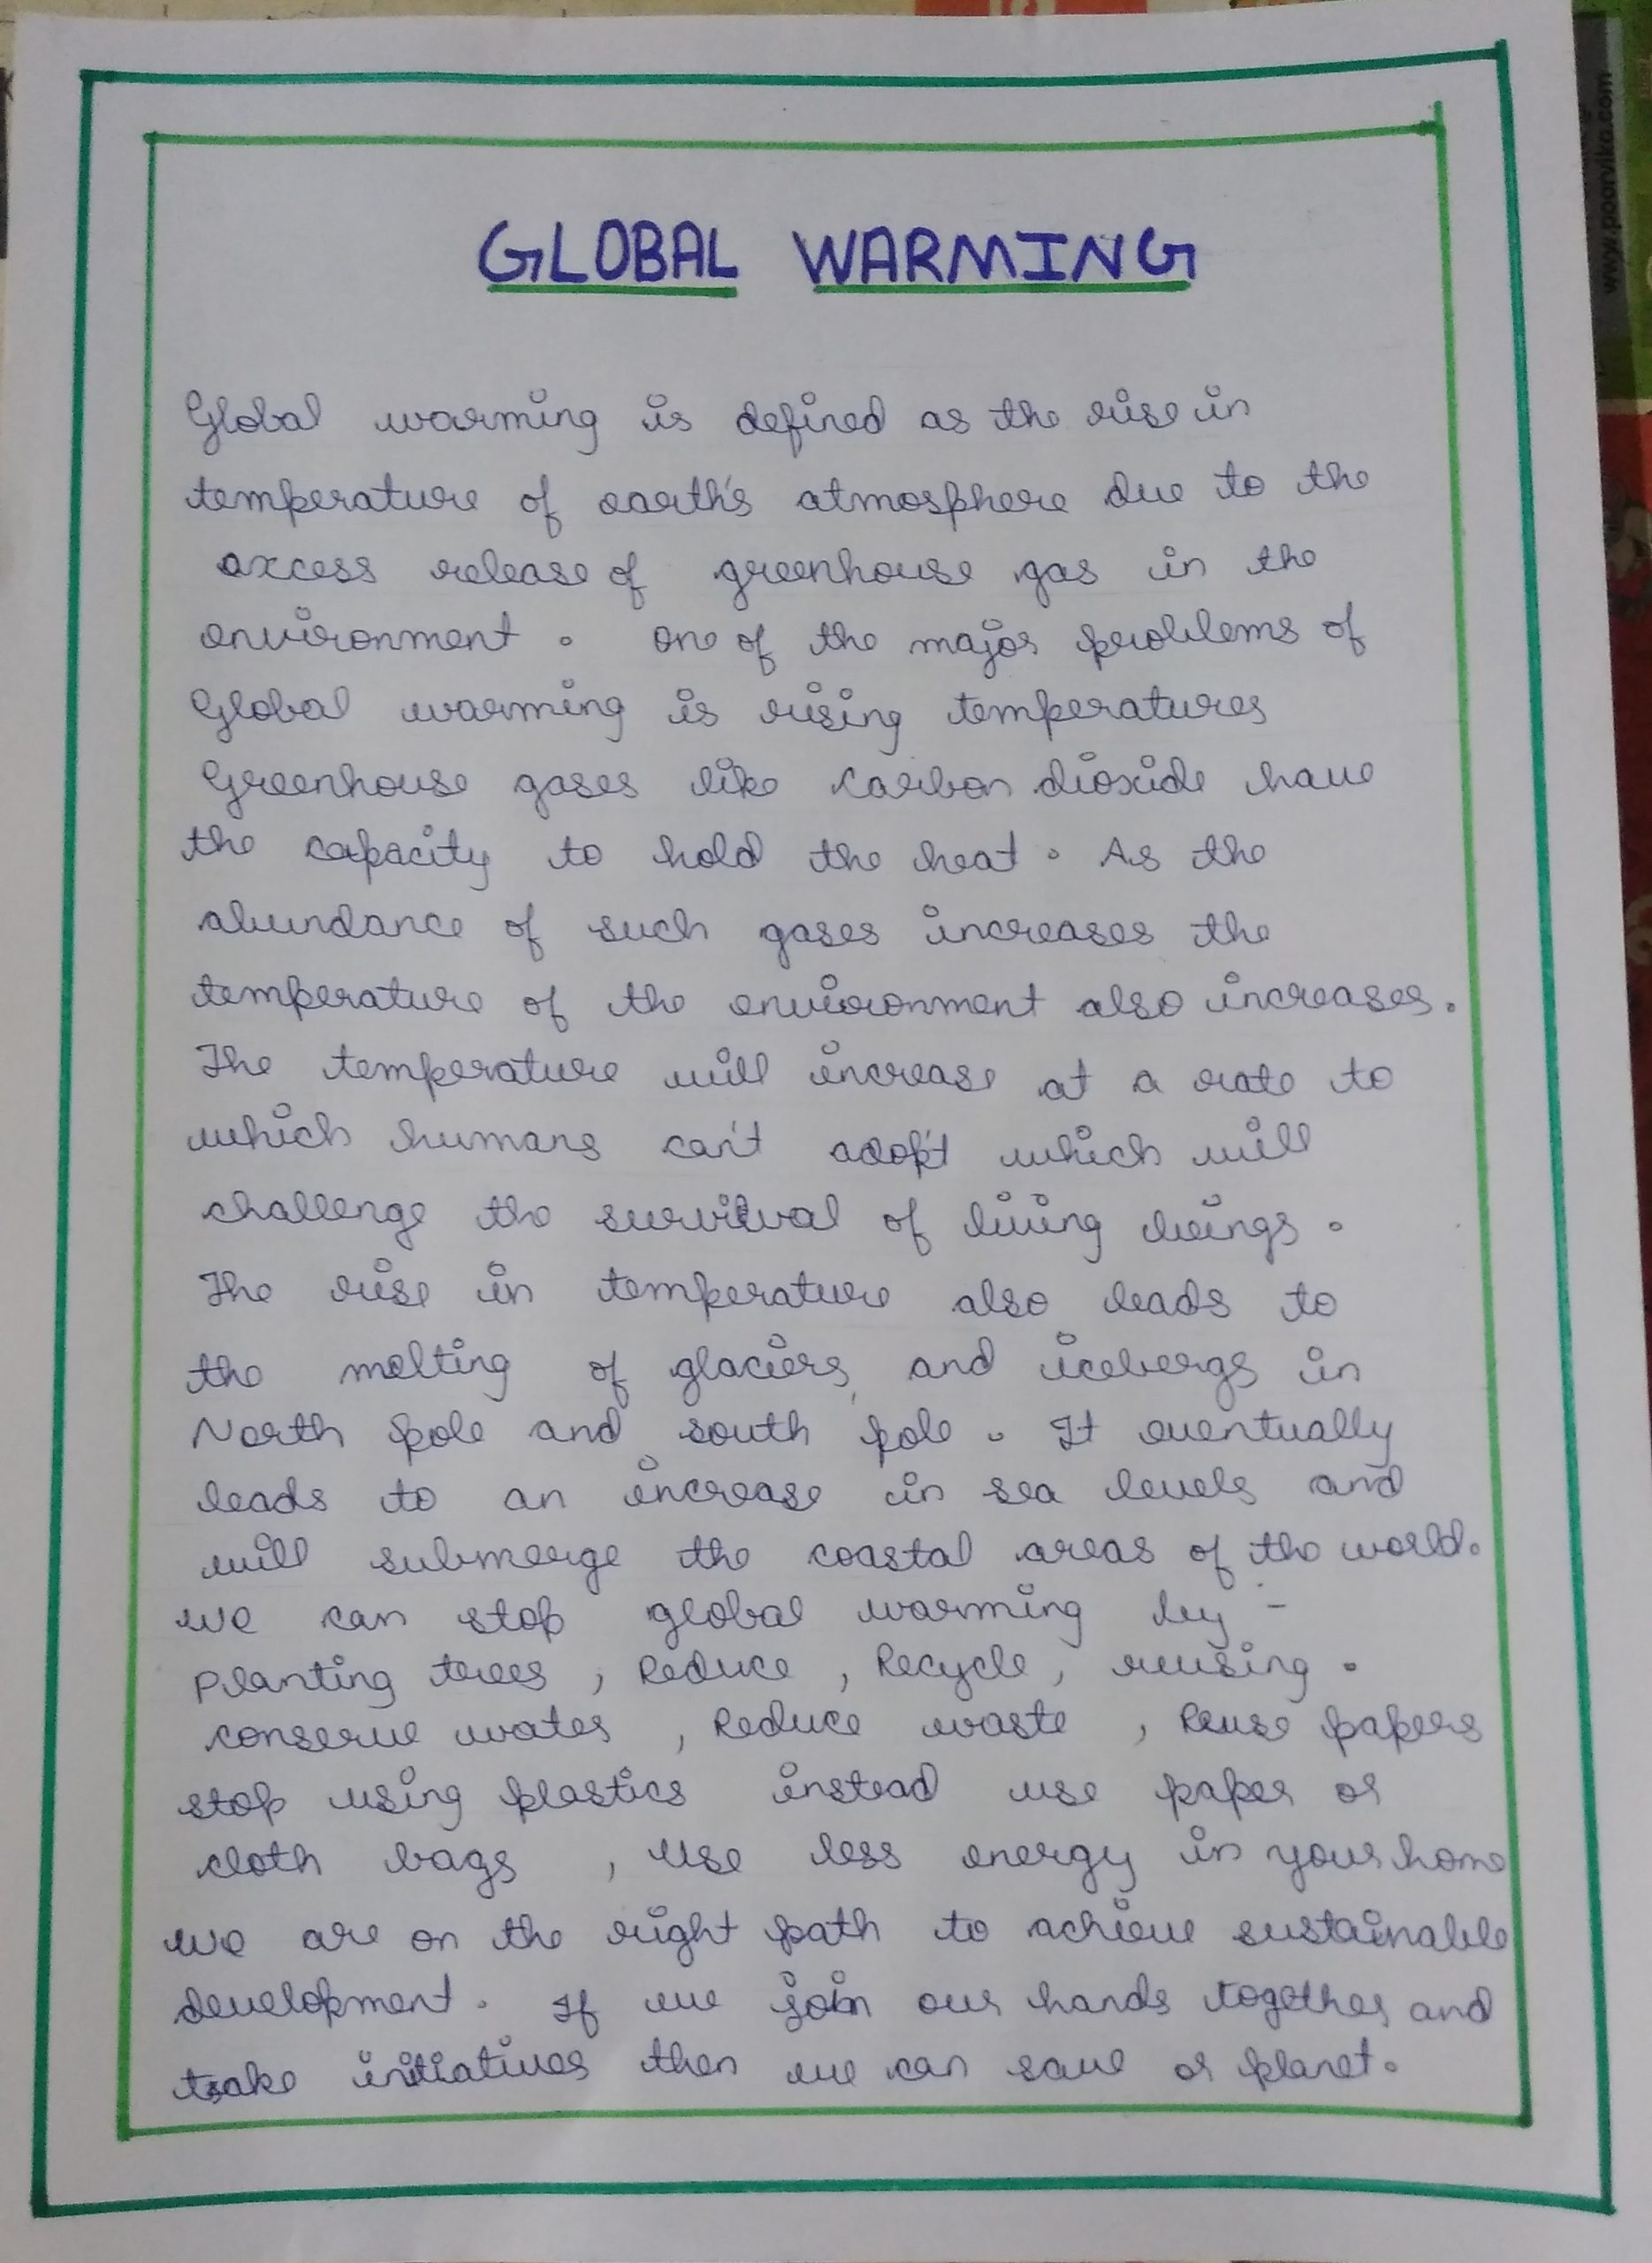 www.poorvika.com
GLOBAL WARMING
Global warming is defined as the rise in
temperature of earth's atmosphere due to the
excess release of greenhouse gas in the
environment. One of the major problems of
Global warming is rising temperatures
Greenhouse gases like carbon dioxide have
the capacity to hold the heat. As the
abundance of such gases increases the
temperature of the environment also increases.
The temperature will increase at a rate to
which humans can't adopt which will
challenge the survival of living beings.
The rise in temperature also leads to
the melting of glaciers and icebergs in
North pole and south pole. It eventually
leads to an increase in sea levels and
will submerge the coastal areas of the world.
we can stop global warming by -
Planting trees, Reduce, Recycle, reusing.
conserve water, Reduce waste, Reuse papers
stop using plastics instead use paper or
cloth bags, Use less energy in your home
we are on the right path to achieve sustainable
development. If we join our hands together and
take initiatives then we can save or planet.